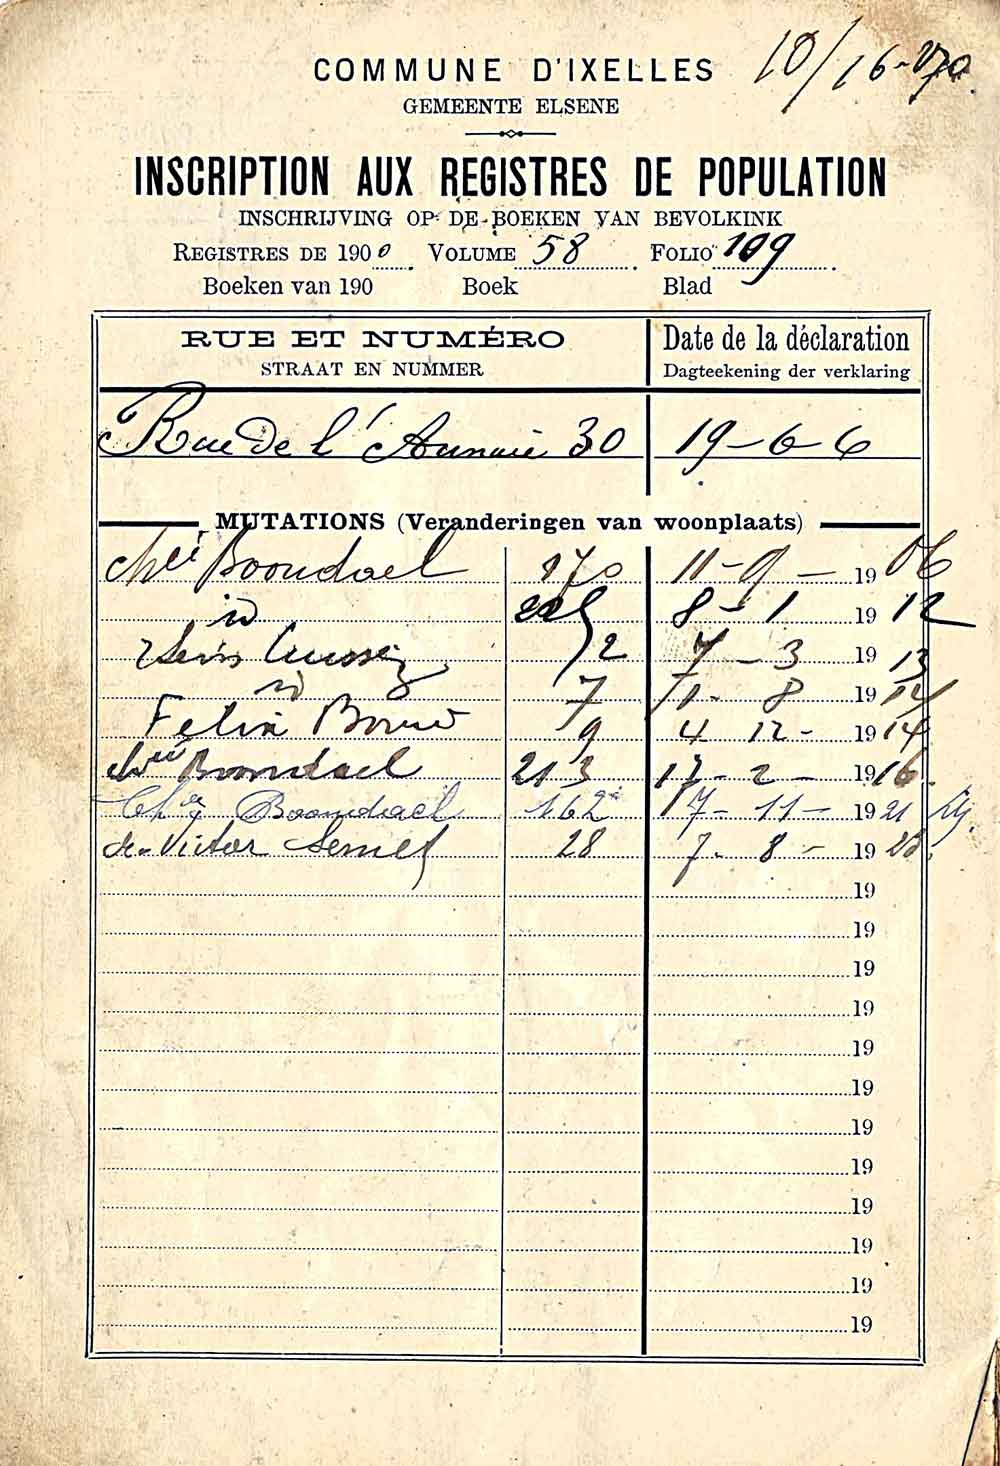 COMMUNE D'IXELLES
10/16-270
GEMEENTE ELSENE
INSCRIPTION AUX REGISTRES DE POPULATION
INSCHRIJVING OP DE BOEKEN VAN BEVOLKINK
REGISTRES DE 1900. VOLUME 58. FOLIO 109.
Boeken van 190 Boek Blad
RUE ET NUMÉRO Date de la déclaration
STRAAT EN NUMMER Dagteekening der verklaring
Rue de l' 30 19-6-6
MUTATIONS (Veranderingen van woonplaats)
Chéé Boondael 270 11-9-1906
id 8-1 1912
7-3 1913
id 7 1-8 1914
Felix Bovie 9 4-12-1914
Chéé Boondael 213 17-2-1916
Chée Boondael 162 17-11-1921
de Victor Semet 28 7-8-19
19
19
19
19
19
19
19
19
19
19
19
19